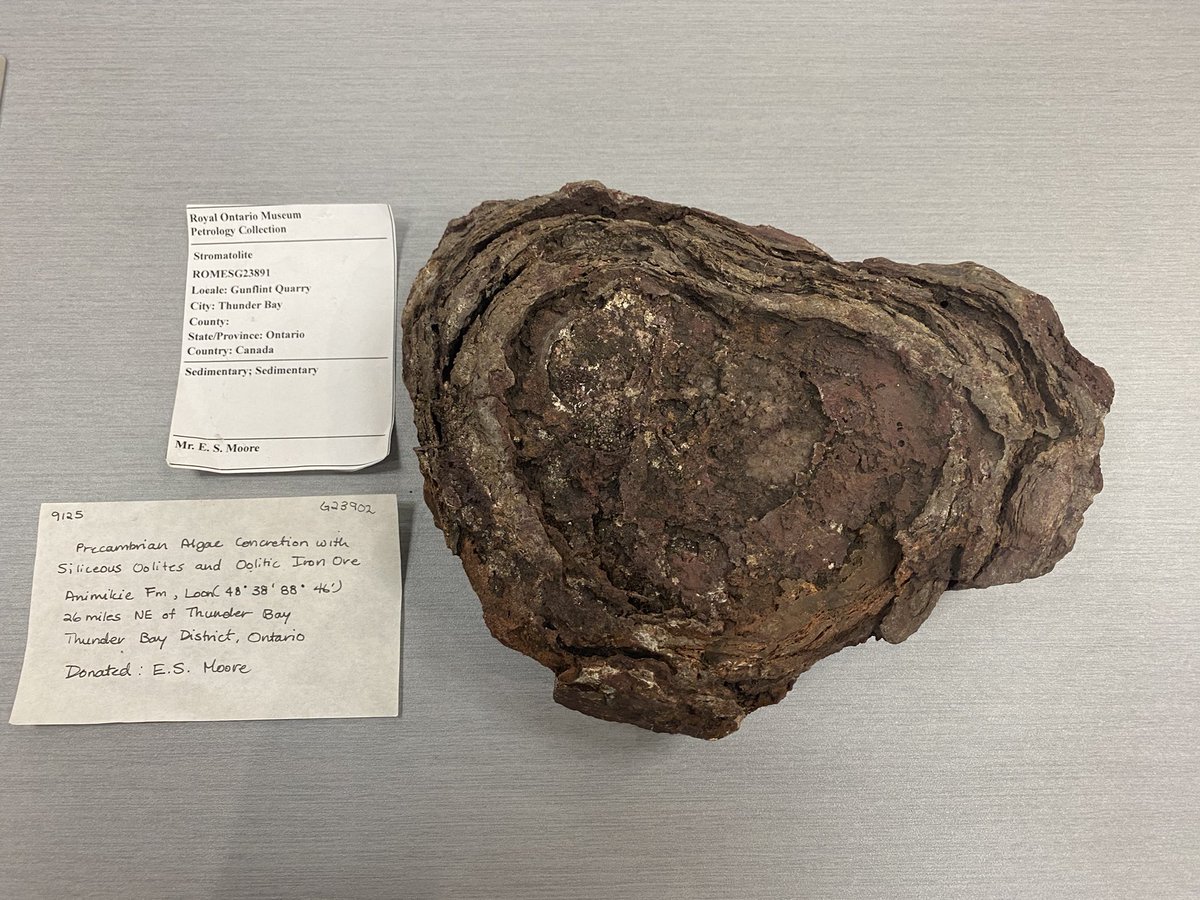 Royal Ontario Museum
Petrology Collection
Stromatolite
ROMESG23891
Locale: Gunflint Quarry
City: Thunder Bay
County:
State/Province: Ontario
Country: Canada
Sedimentary; Sedimentary
Mr. E. S. Moore
9125 G23902
Precambrian Algae Concretion with
Siliceous Oolites and Oolitic Iron Ore
Animikie Fm, Loon( 48° 38' 88° 46')
26 miles NE of Thunder Bay
Thunder Bay District, Ontario
Donated: E.S. Moore